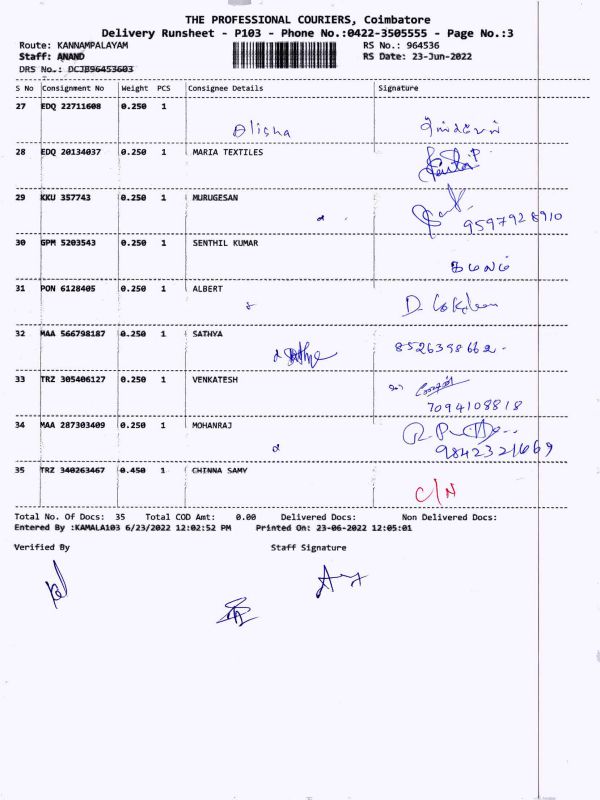 THE PROFESSIONAL COURIERS, Coimbatore
Delivery Runsheet - P103 - Phone No.:0422-3505555 - Page No.:3
Route: KANNAMPALAYAM RS No.: 964536
Staff: ANAND RS Date: 23-Jun-2022
DRS No.: DCJB96453603
S No Consignment No Weight PCS Consignee Details Signature
27 EDQ 22711608 0.250 1
Alisha
28 EDQ 20134037 0.250 1 MARIA TEXTILES
29 KKU 357743 0.250 1 MURUGESAN
9597928910
30 GPM 5203543 0.250 1 SENTHIL KUMAR
31 PON 6128405 0.250 1 ALBERT
32 MAA 566798187 0.250 1 SATHYA
8526398662
33 TRZ 305406127 0.250 1 VENKATESH
7094108818
34 MAA 287303409 0.250 1 MOHANRAJ
9842321669
35 TRZ 340263467 0.450 1 CHINNA SAMY
C/N
Total No. Of Docs: 35 Total COD Amt: 0.00 Delivered Docs: Non Delivered Docs:
Entered By :KAMALA103 6/23/2022 12:02:52 PM Printed On: 23-06-2022 12:05:01
Verified By Staff Signature